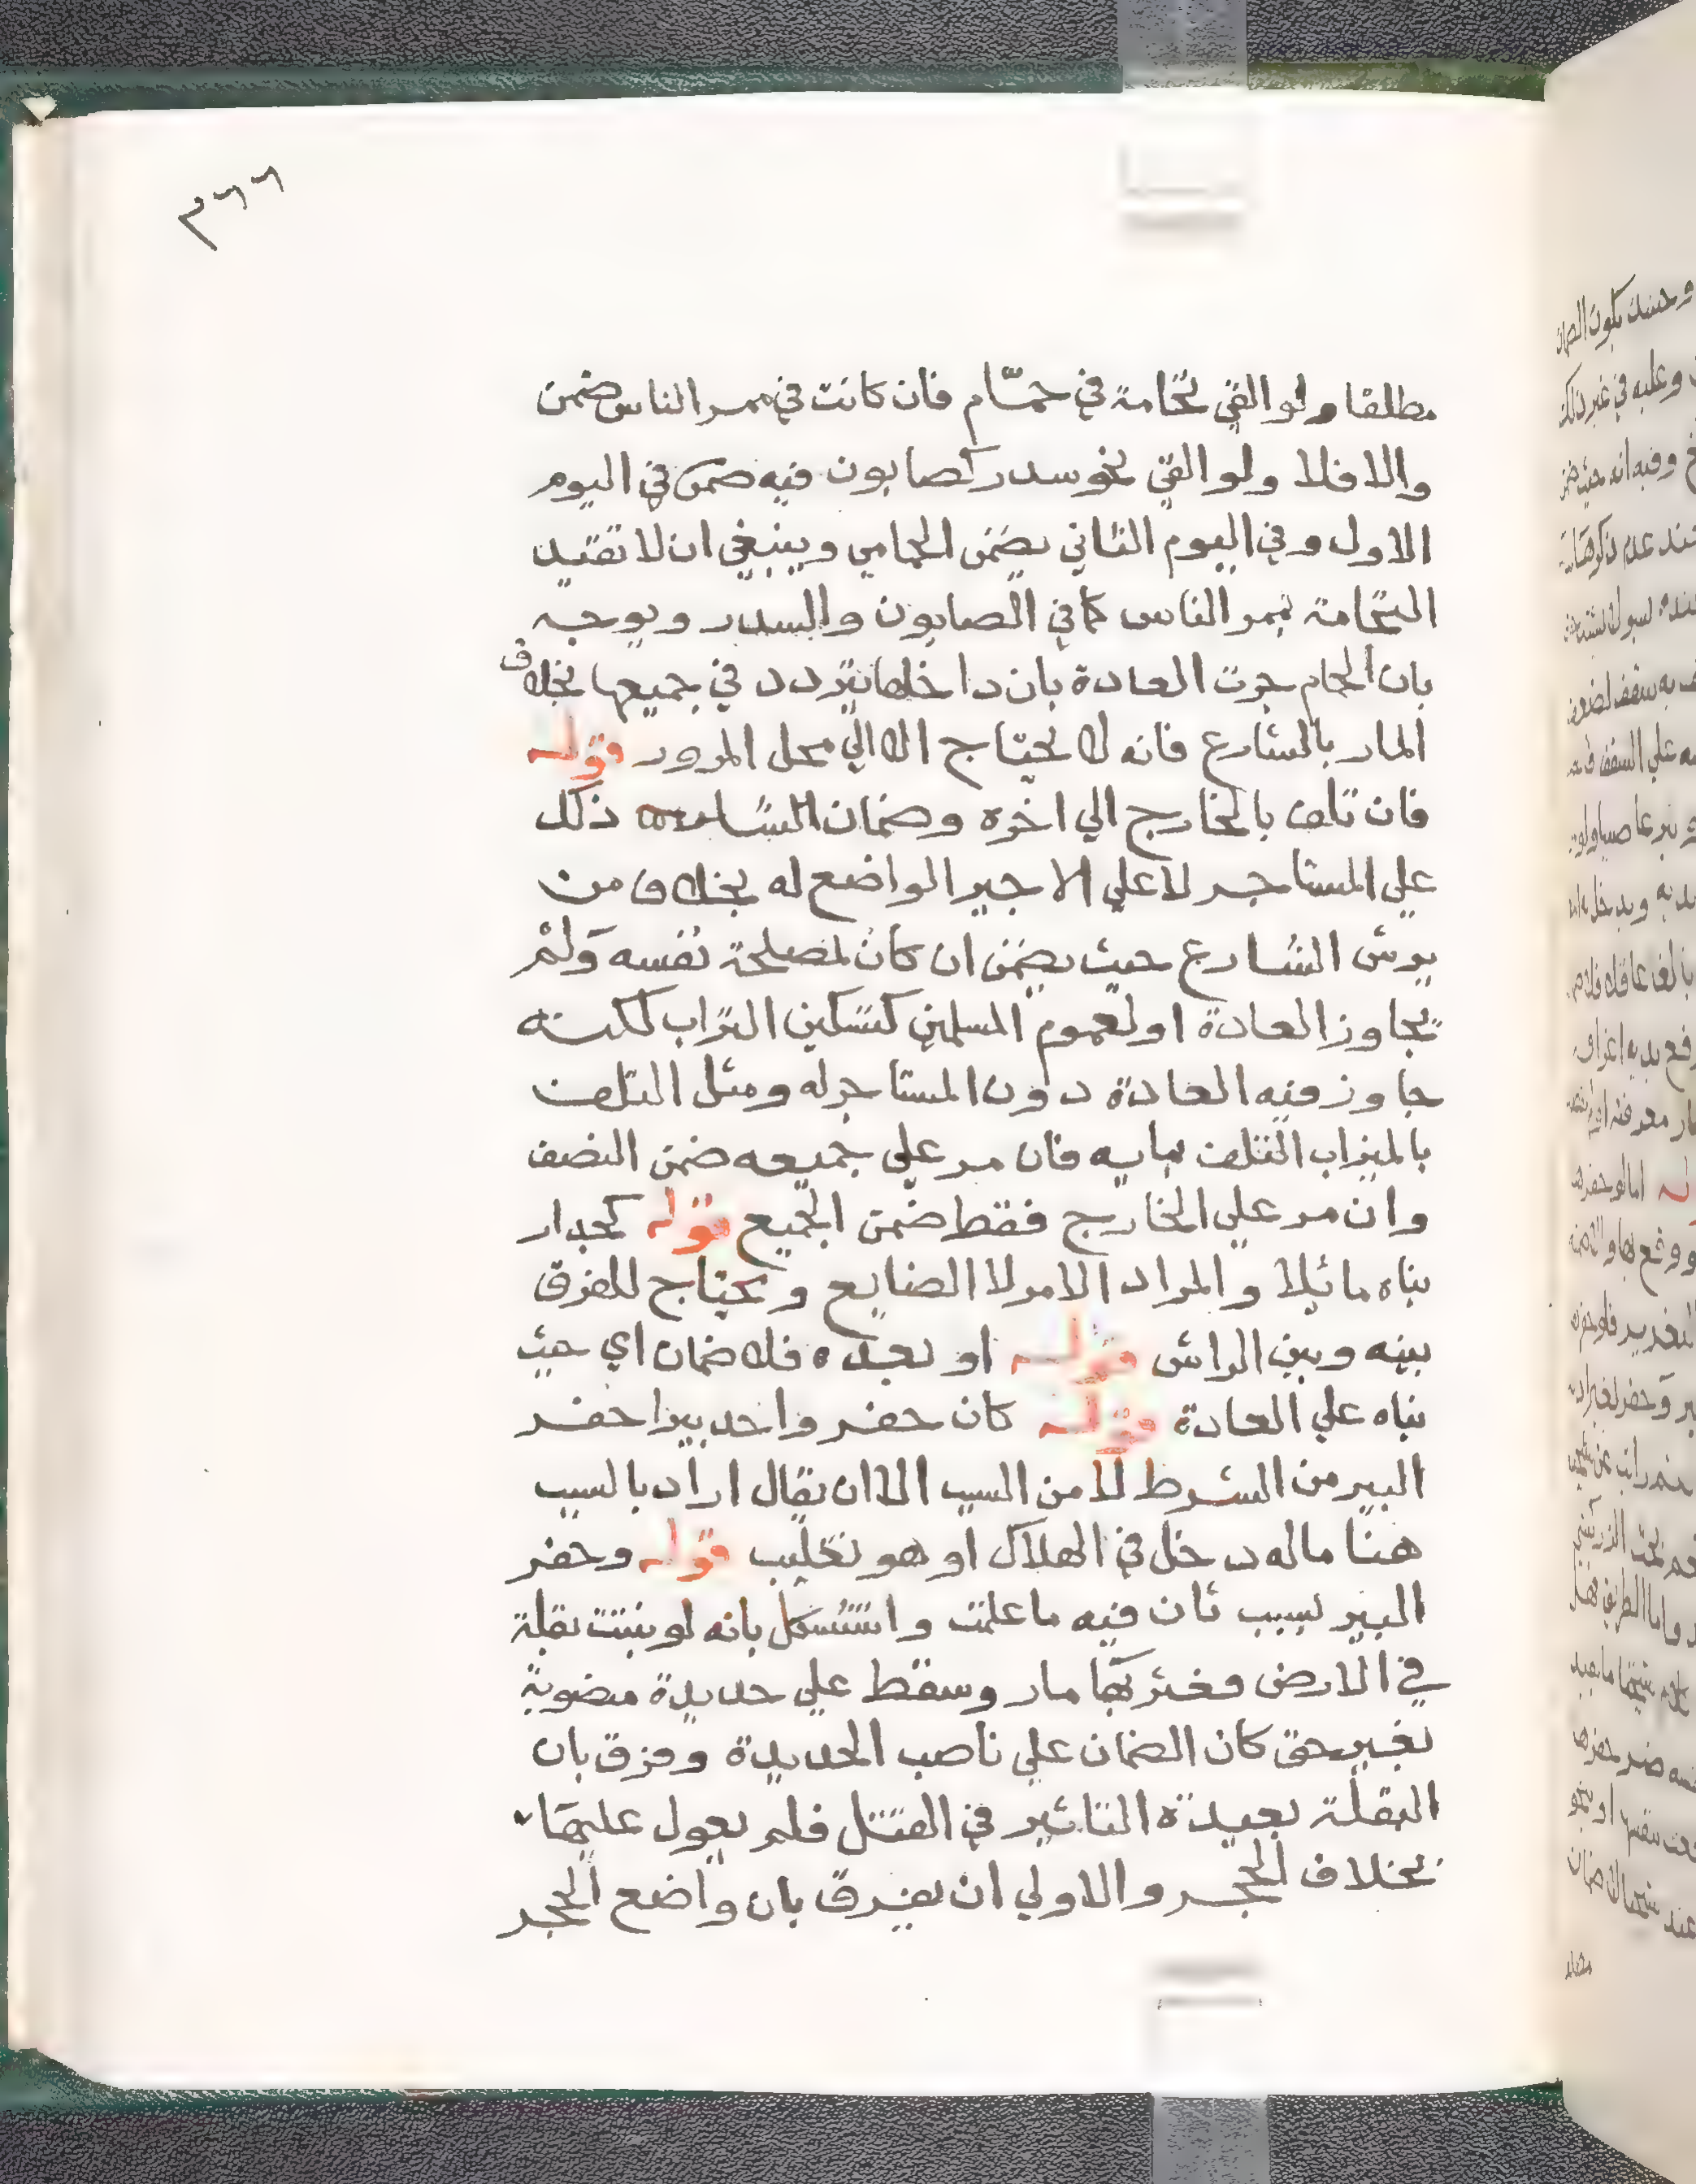 ٣٦٦
مطلقا ولو القي نخامة في حمّام فان كانت في ممر الناس ضمن
والا فلا ولو القي نحو سدر كصابون فيه ضمن في اليوم
الاول وفي اليوم الثاني يضمن الحمامي وينبغي ان لا تقيد
النخامة بممر الناس كما في الصابون والسدر ويوجه
بان الحمام جرت العادة بان داخلها يتردد في جميعها بخلاف
المار بالشارع فانه لا يحتاج الا الي محل المرور قوله
فان تلف بالخارج الي اخره وضمان ذلك
علي المستاجر لا علي الاجير الواضع له بخلاف من
يرش الشارع حيث يضمن ان كان لمصلحة نفسه ولم
يجاوز العادة او لعموم المسلمين كتسكين التراب لكنه
جاوز فيه العادة دون المستاجر له ومثل التلف
بالميزاب التلف بمايه فان مر علي جميعه ضمن النصف
وان مر علي الخارج فقط ضمن الجميع قوله كجدار
بناه مائلا والمراد الامر لا الصانع ويحتاج للفرق
بينه وبين الراش قوله او بعده فلا ضمان اي حيث
بناه علي العادة قوله كان حفر واحد بيرا حفر
البير من الشرط لا من السبب الا ان يقال اراد بالسبب
هنا ماله دخل في الهلاك او هو تغليب قوله وحفر
البير بسبب ثان فيه ما علمت واستشكل بانه لو نبتت بقلة
في الارض فعثر بها مار وسقط علي حديدة منصوبة
بغير حق كان الضمان علي ناصب الحديدة وفرق بان
البقلة بعيدة التاثير في القتل فلم يعول عليها
بخلاف الحجر والاولي ان يفرق بان واضع الحجر